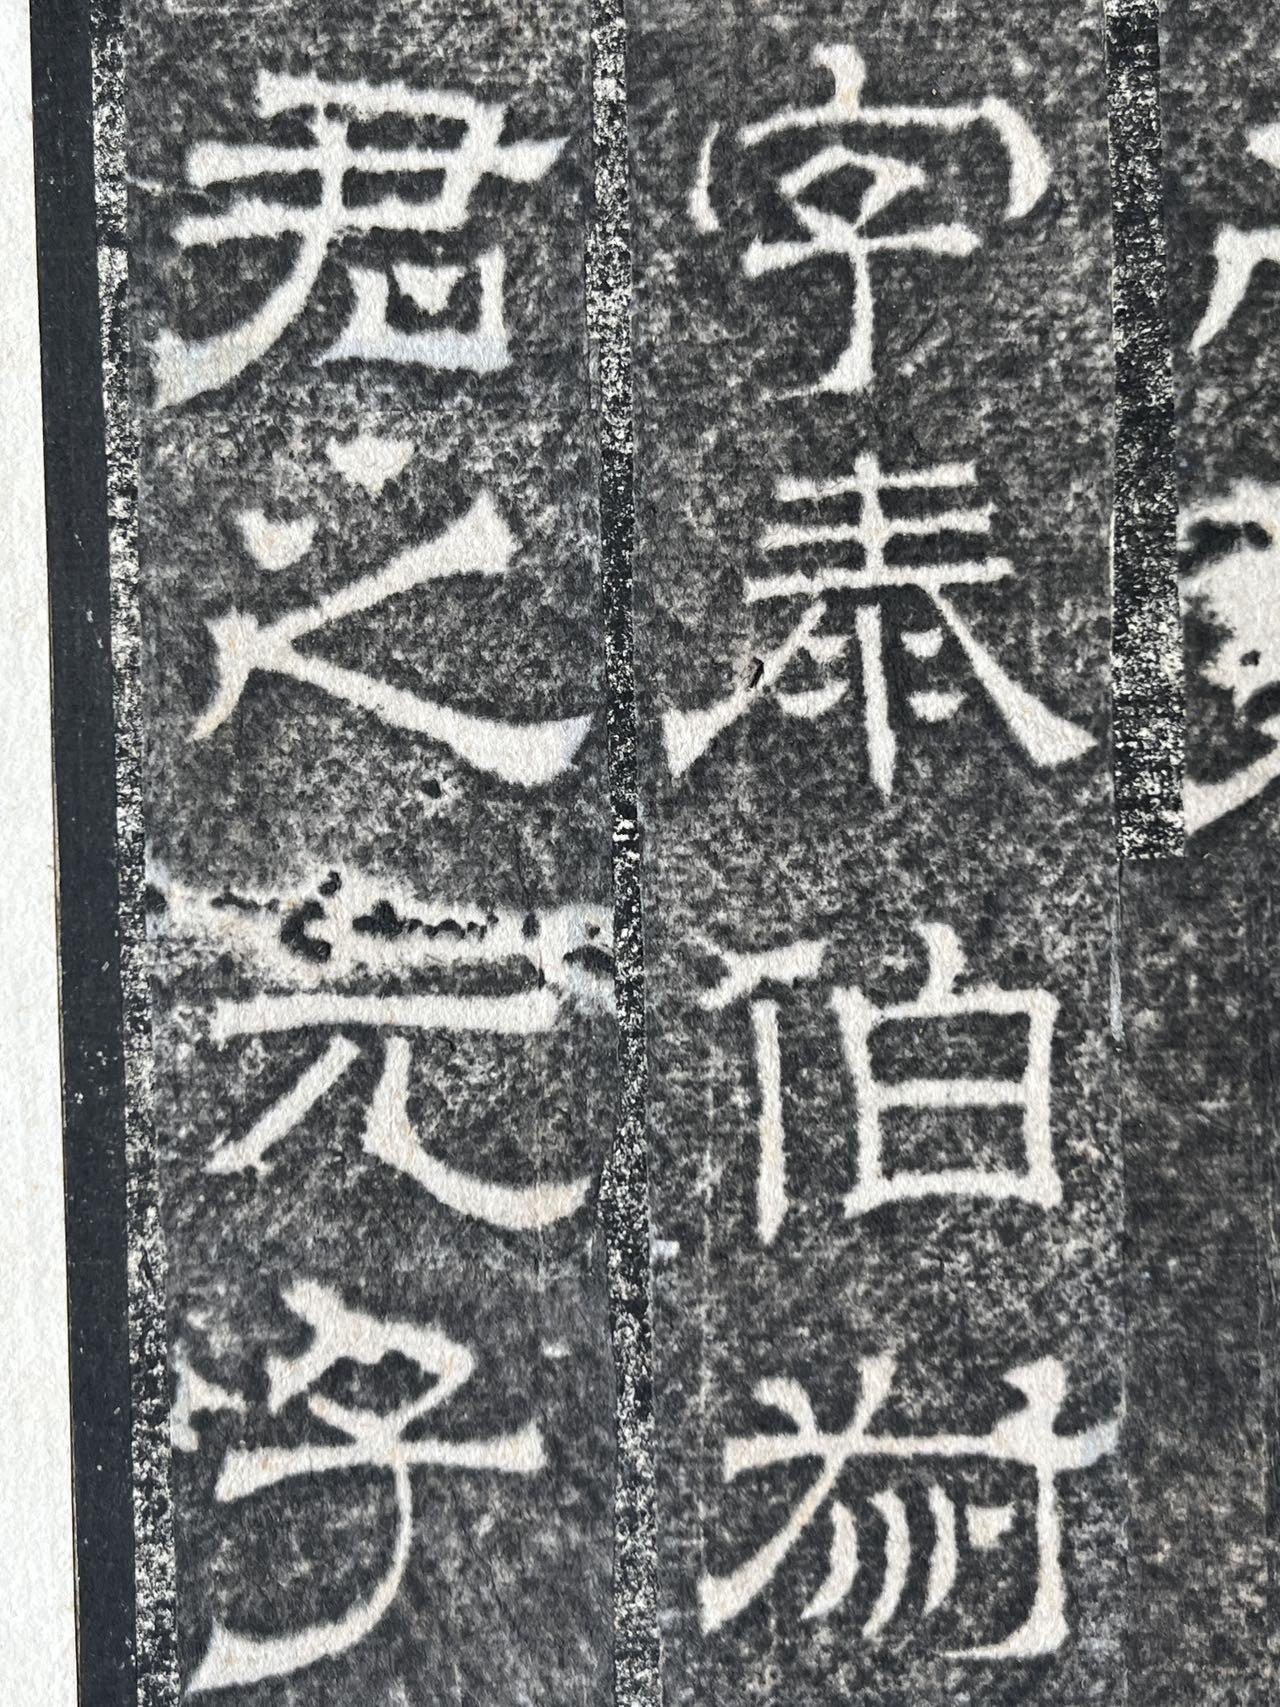 字泰伯為
君之元子